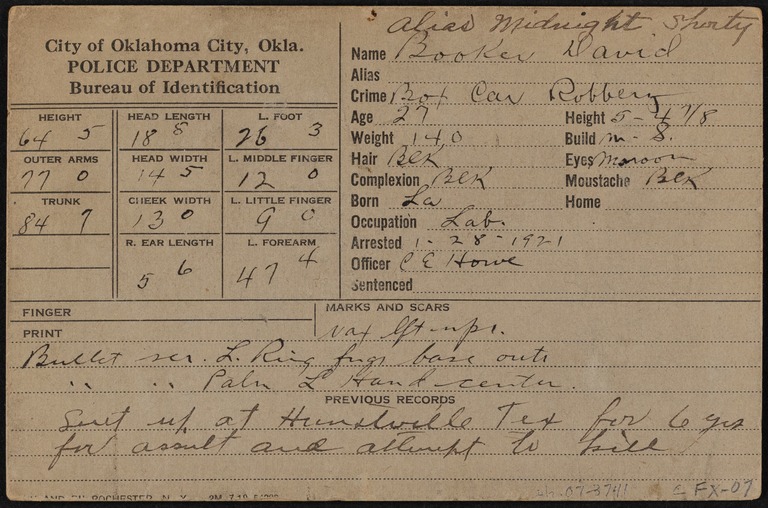 alias Midnight Shorty
City of Oklahoma City, Okla.
POLICE DEPARTMENT
Bureau of Identification
Name Booker David
Alias
Crime Box Car Robbery
Age 27 Height 5-4 7/8
Weight 140 Build m-S.
Hair BlK Eyes Maroon
Complexion BlK Moustache BlK
Born La Home
Occupation Lab.
Arrested 1-28-1921
Officer C E Howe
Sentenced
HEIGHT HEAD LENGTH L. FOOT
64 5 18 8 26 3
OUTER ARMS HEAD WIDTH L. MIDDLE FINGER
77 0 14 5 12 0
TRUNK CHEEK WIDTH L. LITTLE FINGER
84 7 13 0 9 0
R. EAR LENGTH L. FOREARM
5 6 47 4
FINGER
PRINT
MARKS AND SCARS
vax lft-ups.
Bullet scr. L. Ring fngr base outs
" " Palm L Hand center.
PREVIOUS RECORDS
Sent up at Huntsville Tex for 6 yrs
for assult and attempt to kill
ROCHESTER, N. Y.
FX-07